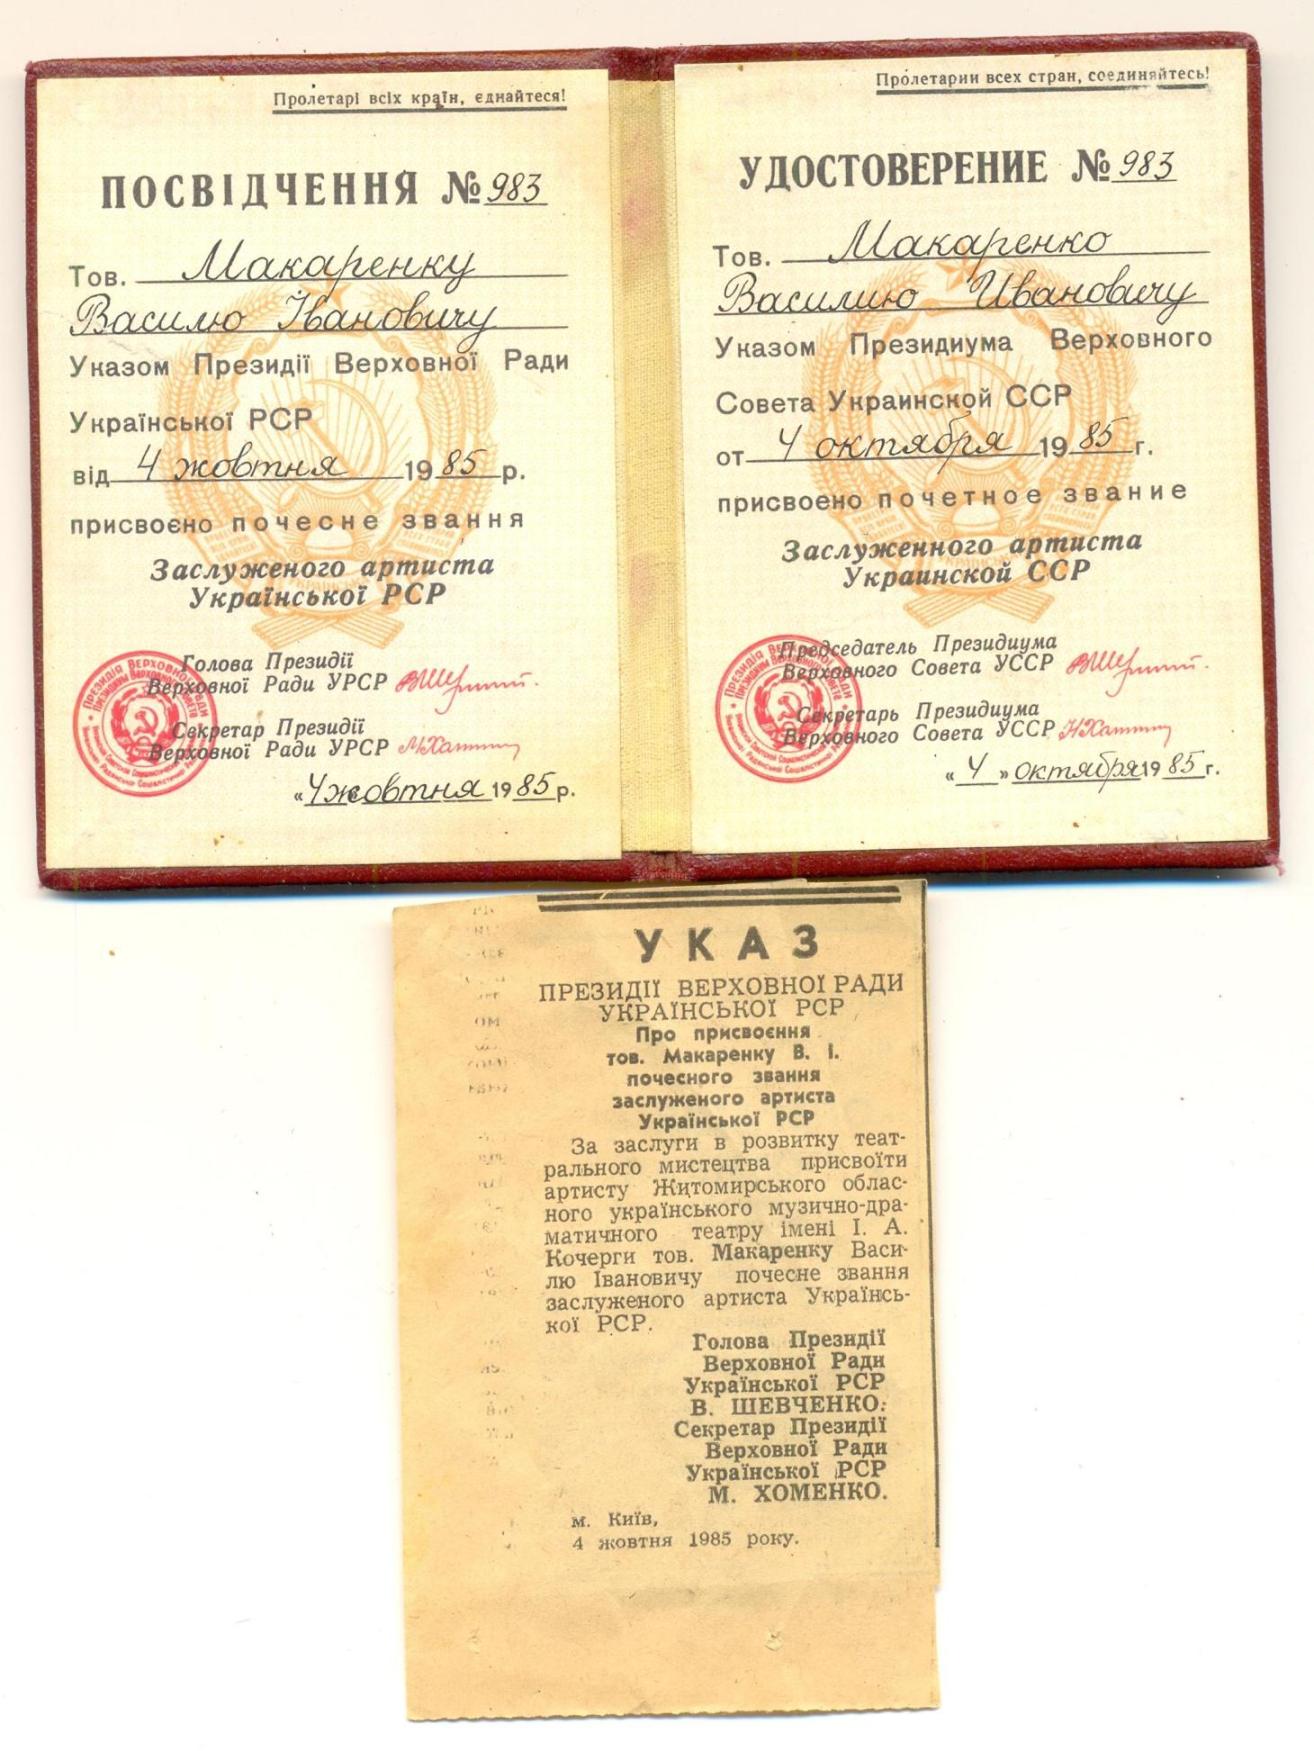 Пролетарі всіх країн, єднайтеся!
ПОСВІДЧЕННЯ № 983
Тов. Макаренку
Василю Івановичу
Указом Президії Верховної Ради
Української РСР
від 4 жовтня 1985 р.
присвоєно почесне звання
Заслуженого артиста
Української РСР
Голова Президії
Верховної Ради УРСР
Секретар Президії
Верховної Ради УРСР
«4» жовтня 1985 р.
Пролетарии всех стран, соединяйтесь!
УДОСТОВЕРЕНИЕ № 983
Тов. Макаренко
Василию Ивановичу
Указом Президиума Верховного
Совета Украинской ССР
от 4 октября 1985 г.
присвоено почетное звание
Заслуженного артиста
Украинской ССР
Председатель Президиума
Верховного Совета УССР
Секретарь Президиума
Верховного Совета УССР
«4» октября 1985 г.
УКАЗ
ПРЕЗИДІЇ ВЕРХОВНОЇ РАДИ
УКРАЇНСЬКОЇ РСР
Про присвоєння
тов. Макаренку В. І.
почесного звання
заслуженого артиста
Української РСР
За заслуги в розвитку теат-
рального мистецтва присвоїти
артисту Житомирського облас-
ного українського музично-дра-
матичного театру імені І. А.
Кочерги тов. Макаренку Васи-
лю Івановичу почесне звання
заслуженого артиста Українсь-
кої РСР.
Голова Президії
Верховної Ради
Української РСР
В. ШЕВЧЕНКО.
Секретар Президії
Верховної Ради
Української РСР
М. ХОМЕНКО.
м. Київ,
4 жовтня 1985 року.